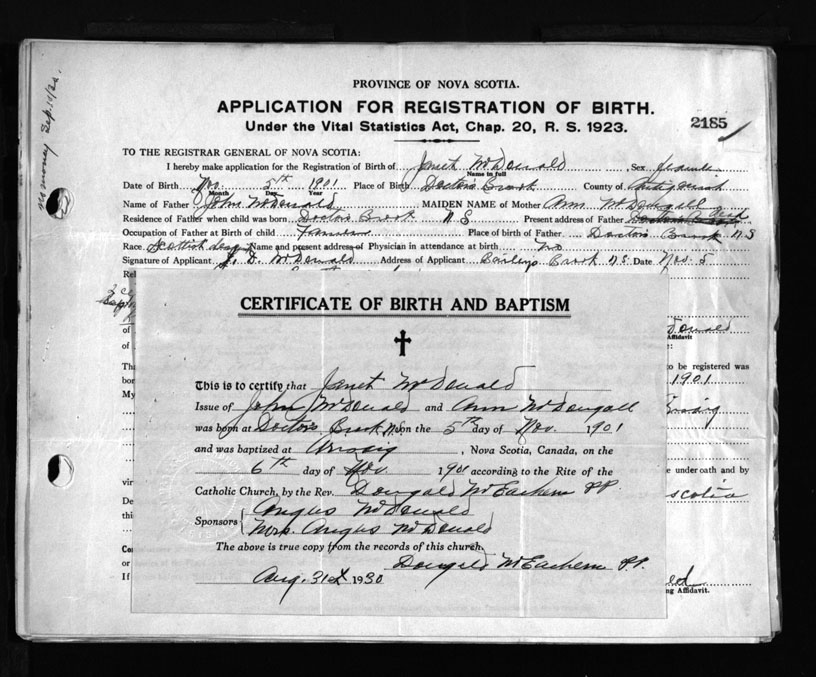 no money Sep. 19/30.
PROVINCE OF NOVA SCOTIA.
APPLICATION FOR REGISTRATION OF BIRTH.
Under the Vital Statistics Act, Chap. 20, R. S. 1923.
2185
TO THE REGISTRAR GENERAL OF NOVA SCOTIA:
I hereby make application for the Registration of Birth of Janet McDonald Sex female
Name in full
Date of Birth Nov. 5th 1901 Place of Birth Doctors Brook County of Antigonish
Month Day Year
Name of Father John McDonald MAIDEN NAME of Mother Ann McDougall
Residence of Father when child was born Doctors Brook N S Present address of Father Dead
Occupation of Father at Birth of child Farmer Place of birth of Father Doctors Brook N S
Race Scottish Name and present address of Physician in attendance at birth no
Signature of Applicant J. D. McDonald Address of Applicant Baileys Brook N S. Date Nov. 5
Rel
CERTIFICATE OF BIRTH AND BAPTISM
This is to certify that Janet McDonald
Issue of John McDonald and Ann McDougall
was born at Doctors Brook N.S. on the 5th day of Nov. 1901
and was baptized at Arisaig, Nova Scotia, Canada, on the
6th day of Nov. 1901 according to the Rite of the
Catholic Church, by the Rev. Dougald McEachern PP.
Sponsors Angus McDonald
Mrs. Angus McDonald
The above is true copy from the records of this church.
Dougald McEachern P.P.
Aug. 31st 1930
of
of
Tha
bor
My
vir
De
this
Co
or
If
Donald
Affidavit
e:
to be registered was
1901
Arisaig
e under oath and by
scotia
ng Affidavit.